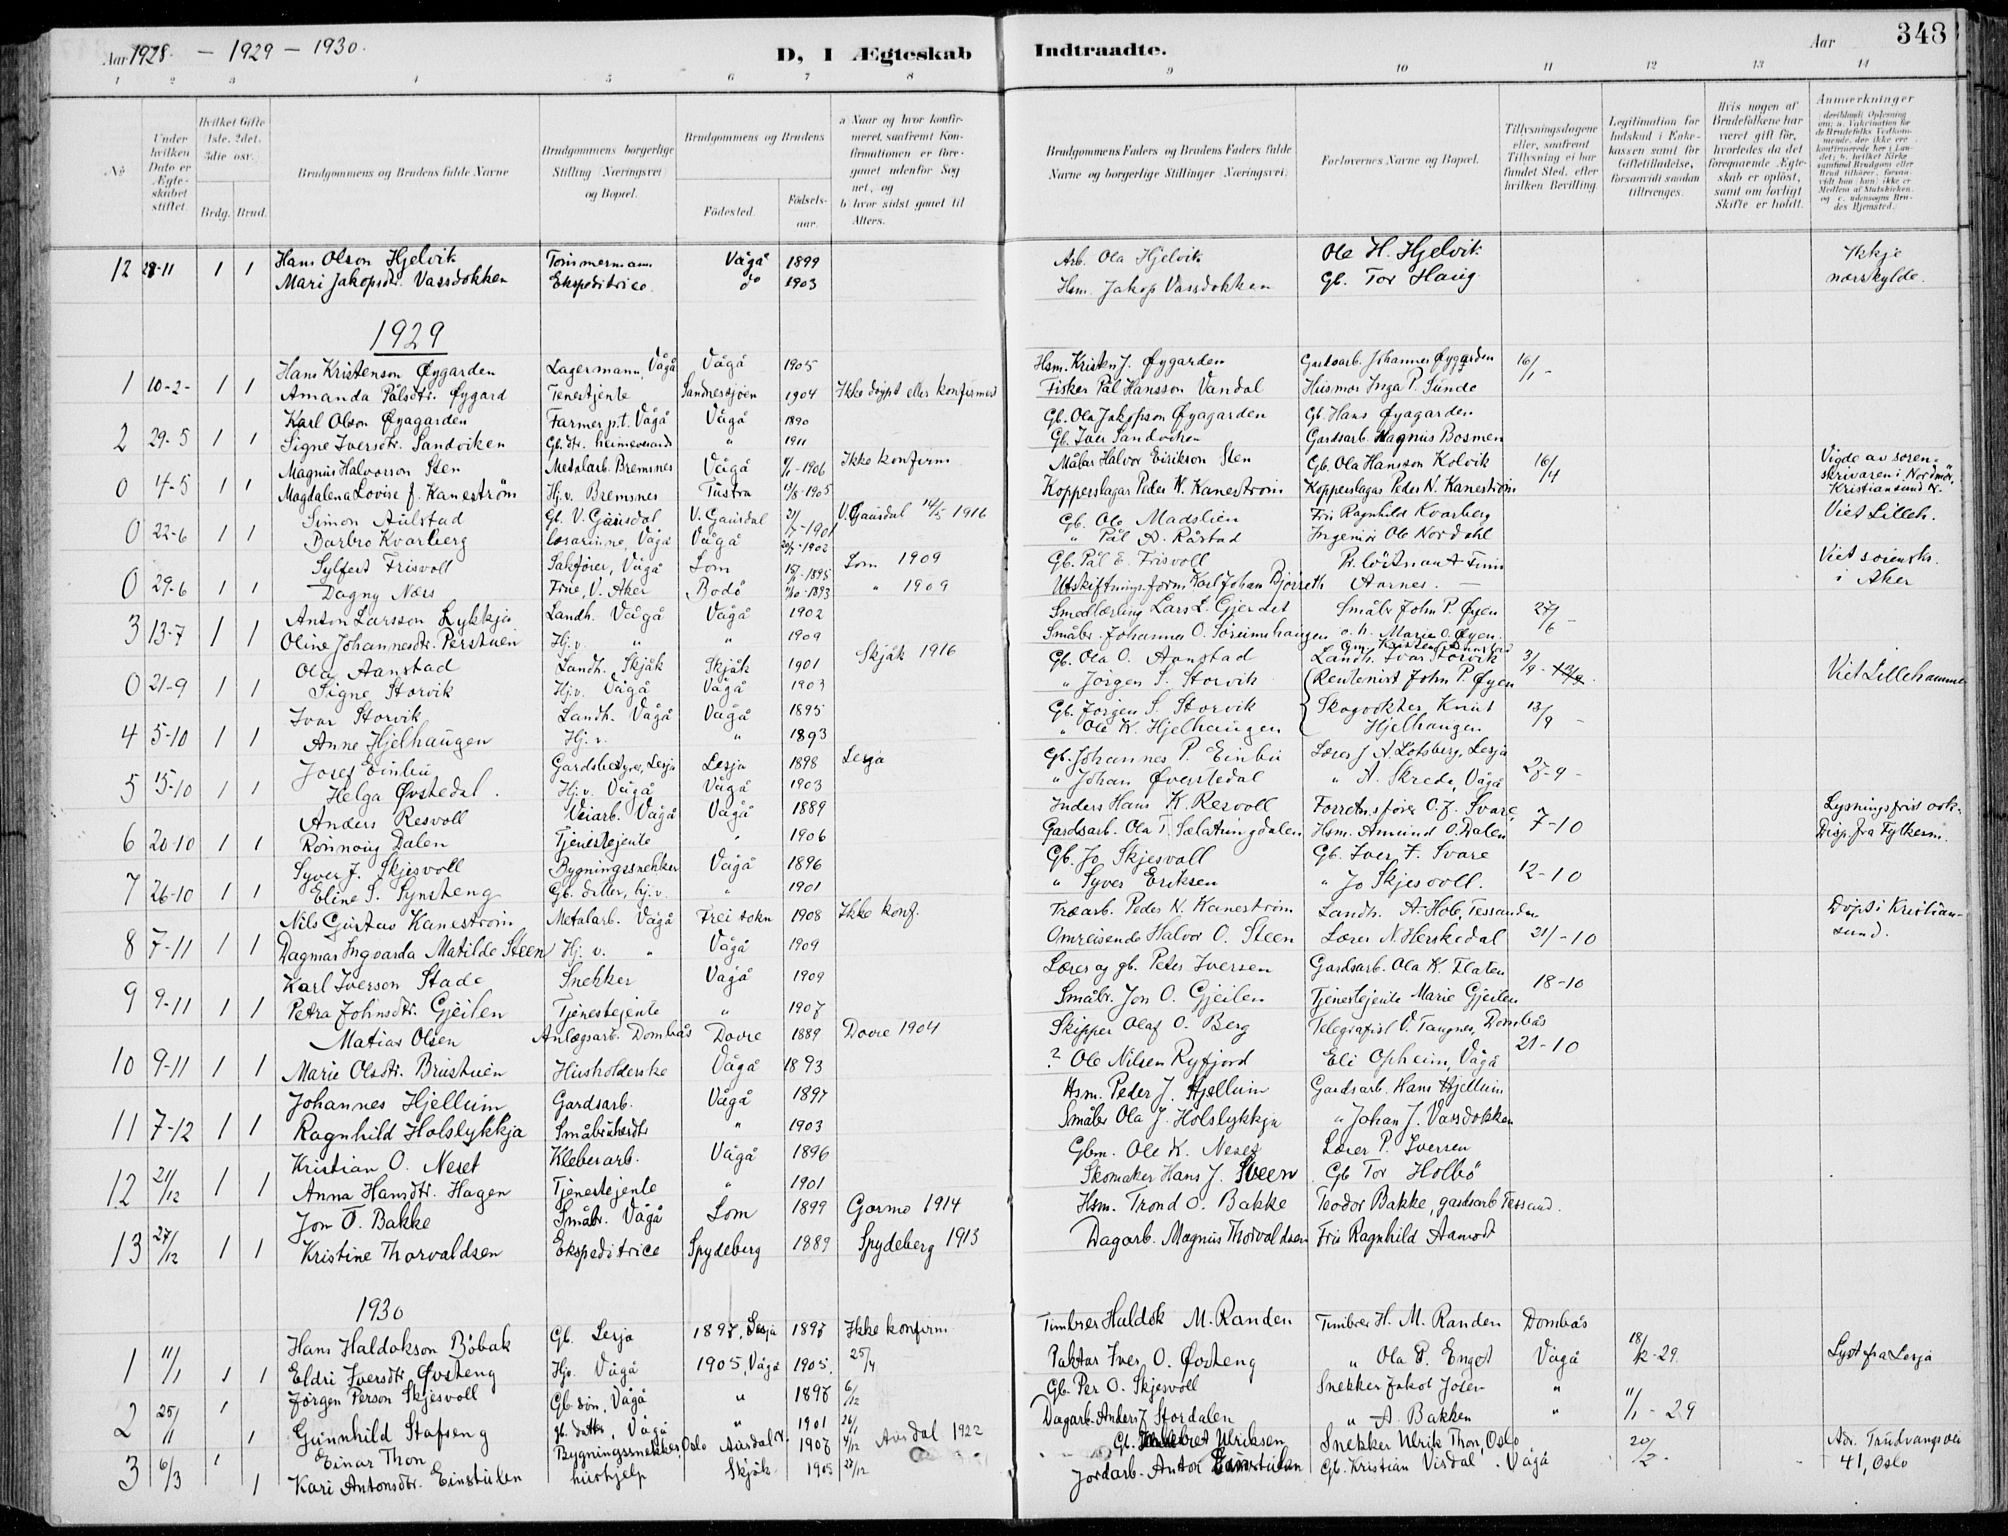 Aar 1928. — 1929 — 1930. D, I Ægteskab Indtraadte. Aar 348
1 2 3 4 5 6 7 8 9 10 11 12 13 14
No. Under hvilken Dato er Ægteskabet stiftet. Hvilket Gifte 1ste. 2det. 3die osv. Brdg. Brud. Brudgommens og Brudens fulde Navne Brudgommens borgerlige Stilling (Næringsvei) og Bopæl. Brudgommens og Brudens Fødested. Fødselsaar. a Naar og hvor konfirmeret, saafremt Konfirmationen er foregaaet udenfor Sognet, og b hvor sidst gaaet til Alters. Brudgommens Faders og Brudens Faders fulde Navne og borgerlige Stillinger (Næringsvei). Forlovernes Navne og Bopæl. Tillysningsdagene eller, saafremt Tillysning ei har fundet Sted, efter hvilken Bevilling. Legitimation for Indskud i Enkekassen samt for Giftetilladelse, forsaavidt saadan tiltrænges. Hvis nogen af Brudefolkene har været gift før, hvorledes da det foregaaende Ægteskab er opløst, samt om lovligt Skifte er holdt. Anmærkninger
12 28-11 1 1 Hans Olson Hjelvik Tømmermann Vågå 1899 Arb. Ola Hjelvik Ole H. Hjelvik Ikkje
Mari Jakopsdtr. Vassdokken Ekspeditrice do 1903 Hsm. Jakop Vassdokken Gb. Tor Haug nærskylde.
1929
Hans Kristenson Øygarden Lagermann, Vågå Vågå 1905 Hsm. Kristen J. Øygarden Gardsarb. Johannes Øygarden 16/1 -
1 10-2- 1 1 Amanda Pålsdtr. Øygard Tenestjente Sandnessjøen 1904 Ikke døypt eller konfirmert Fisker Pål Hansson Vandal Husmor Inga P. Sunde
Karl Olson Øyagarden Farmer p.t. Vågå Vågå 1890 Gb. Ola Jakopson Øyagarden Gb. Hans Øyagarden
2 29-5 1 1 Signe Iversdtr. Sandviken Gb. dtr. heimeverande " 1911 Gb. Iver Sandviken Gardsarb. Magnus Bosmen
Magnus Halvorson Sten Metalarb. Bremsnes Vågå 1906 Ikke konfirm Målar Halvor Eirikson Sten Gb. Ola Hansson Kolvik 16/4 Vigde av soren-
0 4-5 1 1 Magdalena Lovise f. Kanestrøm Hj.v. Bremsnes Tustra 13/8-1905 Kopperslagar Peder N. Kanestrøm Kopperslagar Peder N. Kanestrøm skrivaren i Nordmør, Kristiansund N.
Simon Aulstad Gb. V. Gausdal V. Gausdal 1901 V. Gausdal 14/5 1916 Gb. Ole Madslien Frk Ragnhild Kvarberg Viet Lilleh.
0 22-6 1 1 Barbro Kvarberg Vågå Vågå 1902 " Pål A. Råstad Ingeniør Ole Nordahl
Sylfest Frisvoll Sakfører, Vågå Lom 1895 Lom 1909 Gb. Pål E. Frisvoll Viet sorensk.
0 29-6 1 1 Dagny Næss Frue, V. Aker Bodø 1893 " 1909 Utskiftnings form. Karl Johan Aarnes. — i Aker
Anton Larsson Lykkja Landh. Vågå Vågå 1902 Smedlærling Lars L. Gjerdet Småbr John P. Øyen 27/6 -
3 13-7 1 1 Oline Johannesdtr. Perstuen Hj.v. " " 1909 Småbr. Johannes O. Søreimshaugen o. h. Marie O. Øyen.
Ola Aanstad Landh. Skjåk Skjåk 1901 Skjåk 1916 Gb. Ola O. Aanstad Landh. Ivar Storvik 3/9 -
0 21-9 1 1 Signe Storvik Hj.v. Vågå Vågå 1903 " Jørgen S. Storvik Rentenist John P. Øyen Viet Lillehammer
Ivar Storvik Landh. Vågå Vågå 1895 Gb. Jørgen S. Storvik Skogvokter Knut 13/9 -
4 5-10 1 1 Anne Hjelhaugen Hj.v. " 1893 " Ole K. Hjelhaugen Hjelhaugen
Josef Einbu Gardsbestyrer, Lesja Lesja 1898 Lesja Gb. Johannes P. Einbu Lærer J. A. Lotsberg, Lesja
5 15-10 1 1 Helga Øvstedal. Hj.v. Vågå Vågå 1903 " Johan Øverstedal " A. Skrede, Vågå 27-9 -
Anders Resvoll Veiarb. Vågå Vågå 1889 Inders Hans K. Resvoll Forretn.fører O. J. Svare Lysningsfrist ork-
6 20-10 1 1 Rønnaug Dalen Tjenestejente " 1906 Gardsarb. Ola T. Sælatungdalen Hsm. Amund O. Dalen 7-10 Disp. fra Fylkesm.
Syver J. Skjesvoll Bygningssnekker Vågå 1896 Gb. Jo Skjesvoll Gb. Iver F. Svare
7 26-10 1 1 Eline S. Synsteng Gb. datter, hj.v. " 1901 " Syver Eriksen " Jo Skjesvoll. 12-10
Nils Gustav Kanestrøm Metalarb. Vågå Frei sokn 1908 Ikke konf. Træarb. Peder N. Kanestrøm Landh. A. Hole, Tessanden Døpt i Kristian-
8 7-11 1 1 Dagmar Ingvarda Matilde Steen Hj. v. " Vågå 1909 Omreisende Halvor O. Steen Lærer N. Herskedal 21/-10 sund.
Karl Iverson Stade Snekker Vågå 1909 Lærer og gb. Peter Iversen Gardsarb. Ola K. Flaten
9 9-11 1 1 Petra Johnsdtr. Gjeilen Tjenestejente " 1907 Småbr. Jon O. Gjeilen Tjenestejente Marie Gjeilen 18-10
Matias Olsen Anlægsarb. Dombås Dovre 1889 Dovre 1904 Skipper Olaf O. Berg Telegrafist V. Tangnes, Dombås
10 9-11 1 1 Marie Olsdtr. Brustuen Husholderske Vågå 1893 ? Ole Nilsen Ryfjord Eli Opheim, Vågå 21-10
Johannes Hjellum Gardsarb. Vågå 1897 Hsm. Peder J. Hjellum Gardsarb. Hans Hjellum
11 7-12 1 1 Ragnhild Holslykkja " 1903 Småbr Ola J. Holslykkja " Johan J. Vassdokken
Kristian O. Neset Kleberarb. Vågå 1896 Gbm. Ole K. Neset Lærer P. Iversen
12 21/12 1 1 Anna Hansdtr. Hagen Tjenestejente " 1901 Skomaker Hans J. Sveen Gb Tor Holbø
Jon T. Bakke Småbr. Vågå Lom 1899 Garmo 1914 Hsm. Trond O. Bakke Teodor Bakke, gardsarb Tessand.
13 27/12 1 1 Kristine Thorvaldsen Ekspeditrice Spydeberg 1889 Spydeberg 1913 Dagarb. Magnus Thorvaldsen Frk Ragnhild Aamodt
1930
Hans Haldokson Bøbak Gb. Lesja 1897, Lesja 1897 Ikke konfirm Timbrer Haldok M. Randen Timbrer H. M. Randen Dombås
1 11/1 1 1 Eldri Iversdtr Øvsteng Hjv. Vågå 1905, Vågå 1905 25/4 Paktar Iver O. Øvsteng " Ola P. Enget Vågå 18/12-29 Lyst fra Lesja
2 25/1 1 Jørgen Person Skjesvoll Gb. søn, Vågå " 1897 6/12 Gb. Per O. Skjesvoll Snekker Jakob Josen "
Gunnhild Stafseng gb. datter, Vågå " 1901 26/1 Dagarb. Anders J Stordalen " A. Bakken " 11/1 - 29
Einar Thon Bygningssnekker, Oslo Aurdal V. 1907 4/12 Aurdal 1922 Gb. Ulriksen Snekker Ulrik Thon, Oslo 20/2 Adr. Trudvangsvei
3 6/3 1 1 Kari Antonsdtr. Einstulen hushjelp Skjåk 1905 27/12 Jordarb. Anton Einstulen Gb. Kristian Visdal. Vågå 41, Oslo